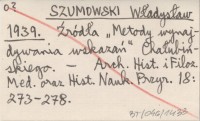 03
SZUMOWSKI Władysław
1939. Źródła „Metody wynaj-
dywania wskazań" Chałubiń-
skiego. — Arch. Hist. i Filoz.
Med. oraz Hist. Nauk. Przyr. 18:
273-278.